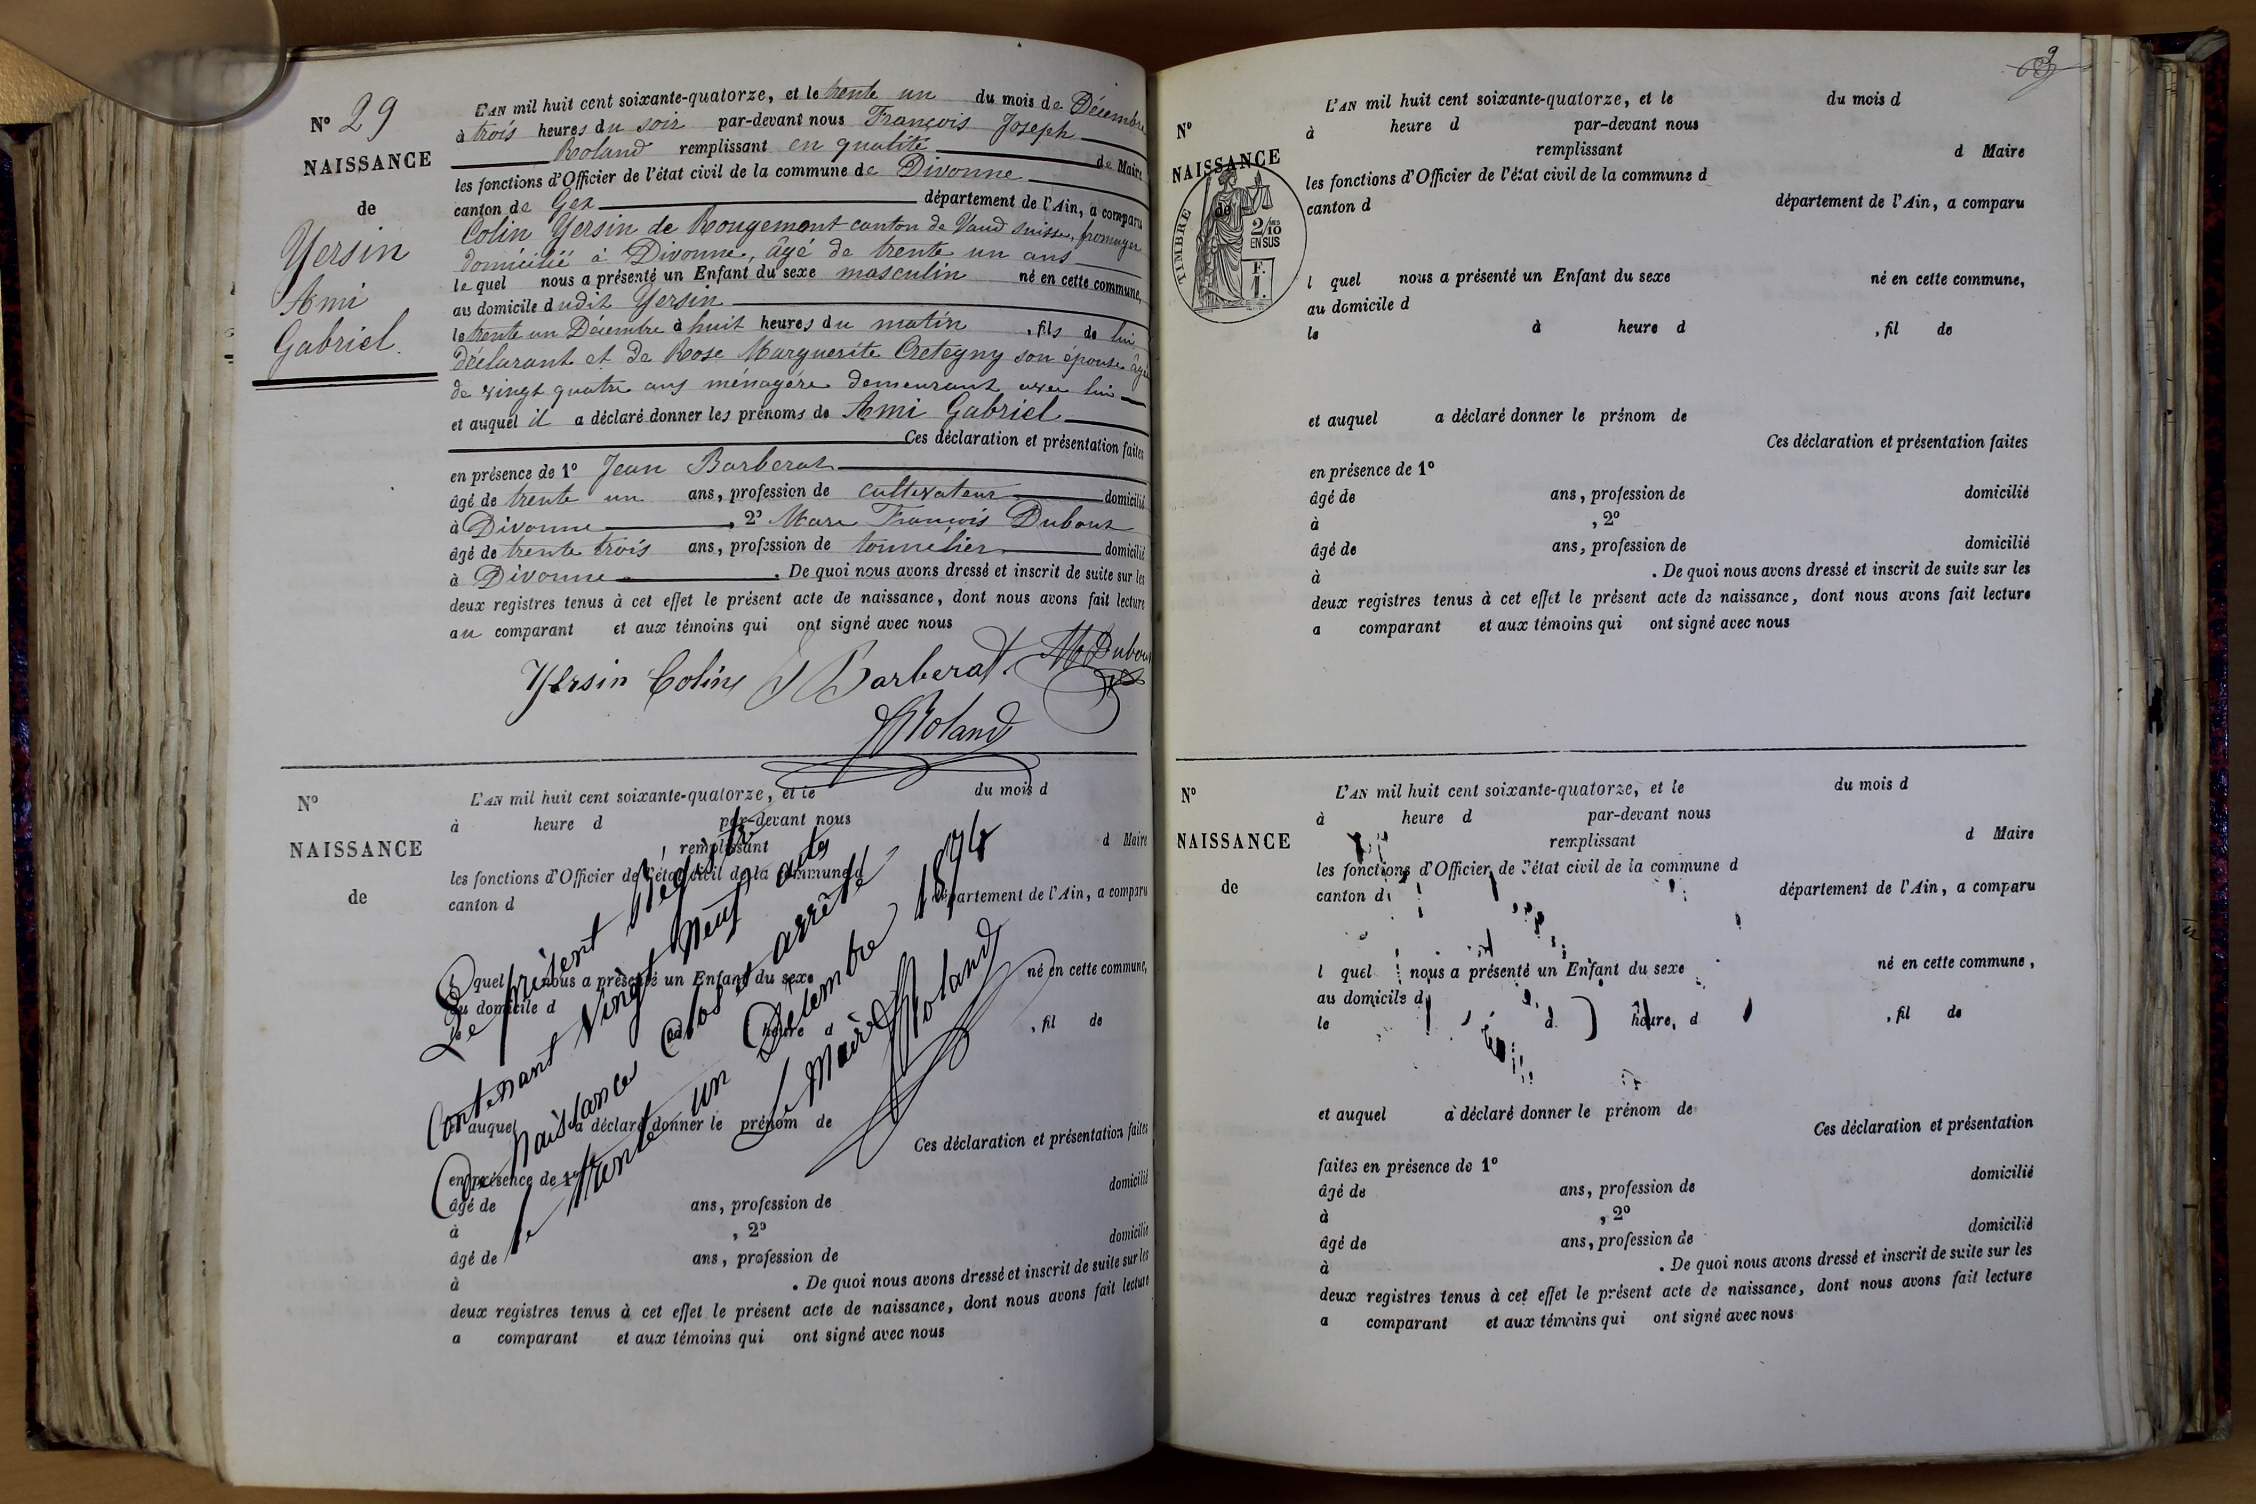 N° 29
NAISSANCE
de
Yersin
Ami
Gabriel.
L'AN mil huit cent soixante-quatorze, et le trente un du mois de Décembre
à trois heures du soir par-devant nous François Joseph
Roland remplissant en qualité de Maire
les fonctions d'Officier de l'état civil de la commune de Divonne
canton de Gex département de l'Ain, a comparu
Colin Yersin de Rougemont canton de Vaud suisse, fromager
domicilié à Divonne, âgé de trente un ans
le quel nous a présenté un Enfant du sexe masculin né en cette commune,
au domicile dudit Yersin
le trente un Décembre à huit heures du matin, fils de lui
déclarant et de Rose Marguerite Cretegny son épouse âgée
de vingt quatre ans ménagère demeurant avec lui
et auquel il a déclaré donner les prénoms de Ami Gabriel
Ces déclaration et présentation faites
en présence de 1° Jean Barberat
âgé de trente un ans, profession de cultivateur domicilié
à Divonne, 2° Marc François Dubout
âgé de trente trois ans, profession de tonnelier domicilié
à Divonne. De quoi nous avons dressé et inscrit de suite sur les
deux registres tenus à cet effet le présent acte de naissance, dont nous avons fait lecture
au comparant et aux témoins qui ont signé avec nous
Yersin Colin J Barberat M Dubout
Roland
N°
NAISSANCE
de
L'AN mil huit cent soixante-quatorze, et le du mois d
à heure d par-devant nous
remplissant d Maire
les fonctions d'Officier de l'état civil de la commune d
canton d département de l'Ain, a comparu
l quel nous a présenté un Enfant du sexe né en cette commune,
au domicile d
le à heure d , fil de
et auquel a déclaré donner le prénom de
Ces déclaration et présentation faites
en présence de 1°
âgé de ans, profession de domicilié
à , 2°
âgé de ans, profession de domicilié
à . De quoi nous avons dressé et inscrit de suite sur les
deux registres tenus à cet effet le présent acte de naissance, dont nous avons fait lecture
a comparant et aux témoins qui ont signé avec nous
Le présent Régistre
Contenant vingt neuf actes
De naissances Clos et arrêté
le trente un Décembre 1874
Le Maire Roland
9
N°
NAISSANCE
de
TIMBRE
2/10
EN SUS
F.
1.
L'AN mil huit cent soixante-quatorze, et le du mois d
à heure d par-devant nous
remplissant d Maire
les fonctions d'Officier de l'état civil de la commune d
canton d département de l'Ain, a comparu
l quel nous a présenté un Enfant du sexe né en cette commune,
au domicile d
le à heure d , fil de
et auquel a déclaré donner le prénom de
Ces déclaration et présentation faites
en présence de 1°
âgé de ans, profession de domicilié
à , 2°
âgé de ans, profession de domicilié
à . De quoi nous avons dressé et inscrit de suite sur les
deux registres tenus à cet effet le présent acte de naissance, dont nous avons fait lecture
a comparant et aux témoins qui ont signé avec nous
N°
NAISSANCE
de
L'AN mil huit cent soixante-quatorze, et le du mois d
à heure d par-devant nous
remplissant d Maire
les fonctions d'Officier de l'état civil de la commune d
canton d département de l'Ain, a comparu
l quel nous a présenté un Enfant du sexe né en cette commune,
au domicile d
le à heure d , fil de
et auquel a déclaré donner le prénom de
Ces déclaration et présentation
faites en présence de 1° domicilié
âgé de ans, profession de
à , 2° domicilié
âgé de ans, profession de
à . De quoi nous avons dressé et inscrit de suite sur les
deux registres tenus à cet effet le présent acte de naissance, dont nous avons fait lecture
a comparant et aux témoins qui ont signé avec nous